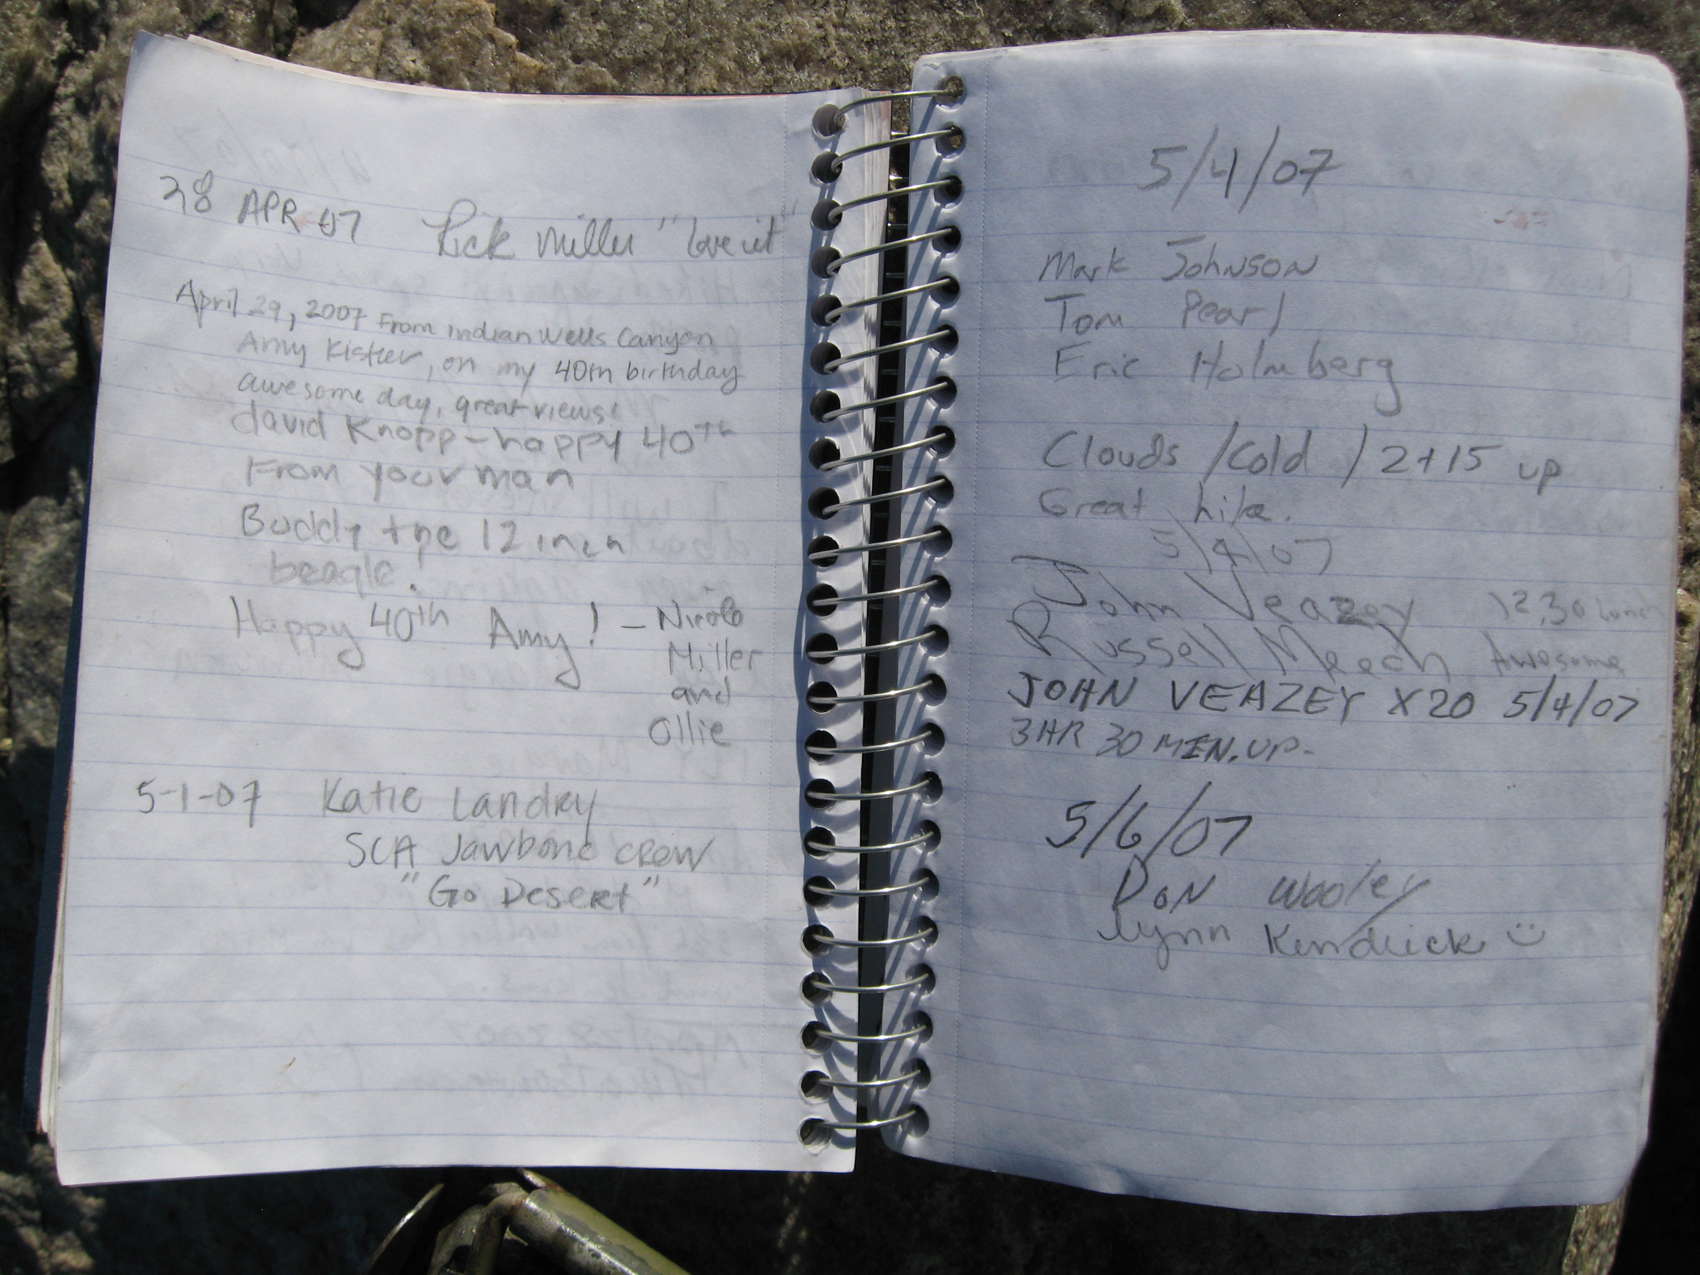 28 APR 07 Rick Miller "love it"
April 29, 2007 From Indian Wells Canyon
Amy Kistler, on my 40th birthday
awesome day, great views!
david Knopp - happy 40th
From your man
Buddy the 12 inch
beagle!
Happy 40th Amy! - Nicole
Miller
and
Ollie
5-1-07 Katie Landry
SCA Jawbone CREW
"Go Desert"
5/4/07
Mark Johnson
Tom Pearl
Eric Holmberg
Clouds / Cold / 2+15 up
Great hike.
5/4/07
John Veazey 12,30
Russell Meech Awesome
JOHN VEAZEY X20 5/4/07
3 HR 30 MIN. UP-
5/6/07
Don Wooley
Lynn Kendrick